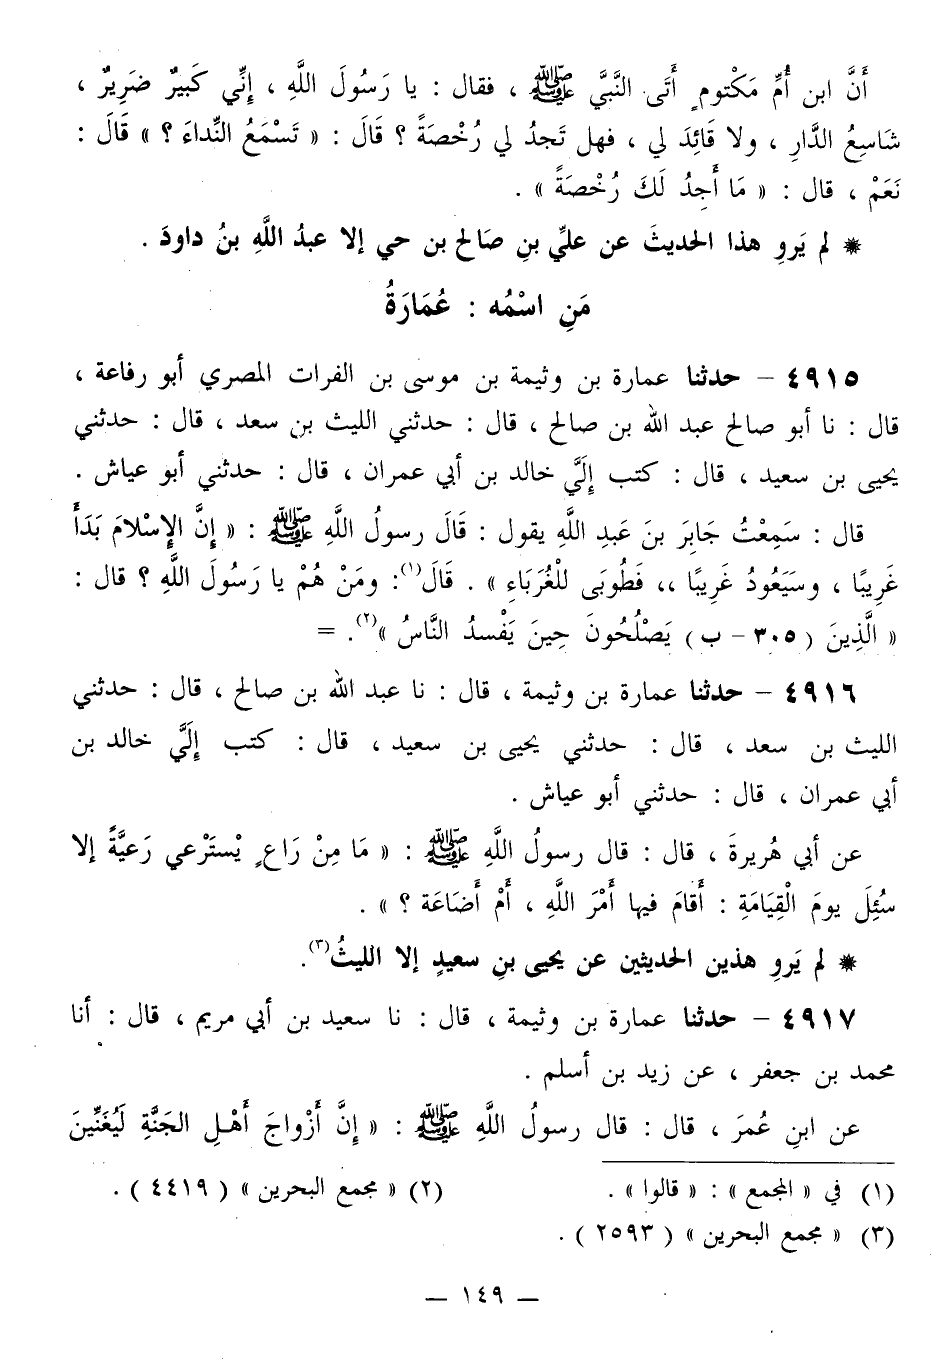 أَنَّ ابن أُمِّ مَكْتومٍ أَتَى النَّبيَّ ﷺ ، فقال : يا رَسُولَ اللَّهِ ، إِنِّي كَبيرٌ ضَرِيرٌ ،
شَاسِعُ الدَّارِ ، ولا قَائِدَ لي ، فهل تَجدُ لي رُخْصَةً ؟ قَالَ : « تَسْمَعُ النِّداءَ ؟ » قَالَ :
نَعَمْ ، قال : « مَا أَجِدُ لَكَ رُخْصَةً » .
* لم يَروِ هذا الحديثَ عن عليِّ بنِ صَالحِ بن حي إلا عبدُ اللَّهِ بنُ داودَ .
مَنِ اسْمُه : عُمَارَةُ
٤٩١٥ – حدثنا عمارة بن وثيمة بن موسى بن الفرات المصري أبو رفاعة ،
قال : نا أبو صالح عبد الله بن صالح ، قال : حدثني الليث بن سعد ، قال : حدثني
يحيى بن سعيد ، قال : كتب إِلَيَّ خالد بن أبي عمران ، قال : حدثني أبو عياش .
قال : سَمِعْتُ جَابِرَ بنَ عَبدِ اللَّهِ يقول : قَالَ رسولُ اللَّهِ ﷺ : « إِنَّ الإِسْلامَ بَدَأَ
غَرِيبًا ، وسَيَعُودُ غَرِيبًا ،، فَطُوبَى للْغُرَبَاءِ » . قَالَ(١): ومَنْ هُمْ يا رَسُولَ اللَّهِ ؟ قال :
« الَّذِينَ ( ٣٠٥ – ب ) يَصْلُحُونَ حِينَ يَفْسدُ النَّاسُ »(٢). =
٤٩١٦ – حدثنا عمارة بن وثيمة ، قال : نا عبد الله بن صالح ، قال : حدثني
الليث بن سعد ، قال : حدثني يحيى بن سعيد ، قال : كتب إِلَيَّ خالد بن
أبي عمران ، قال : حدثني أبو عياش .
عن أبي هُريرةَ ، قال : قال رسولُ اللَّهِ ﷺ : « مَا مِنْ رَاعٍ يْسترْعي رَعيَّةً إلا
سُئِلَ يومَ الْقِيَامَةِ : أَقَامَ فيها أَمْرَ اللَّهِ ، أَمْ أَضَاعَة ؟ » .
* لم يَروِ هذين الحديثين عن يحيى بنِ سعيدٍ إلا الليثُ(٣).
٤٩١٧ – حدثنا عمارة بن وثيمة ، قال : نا سعيد بن أبي مريم ، قال : أنا
محمد بن جعفر ، عن زيد بن أسلم .
عن ابنِ عُمرَ ، قال : قال رسولُ اللَّهِ ﷺ : « إنَّ أَزْواجَ أَهْلِ الجَنَّةِ لَيُغَنِّينَ
(١) في « المجمع » : « قالوا » . (٢) « مجمع البحرين » ( ٤٤١٩ ) .
(٣) « مجمع البحرين » ( ٢٥٩٣ ) .
— ١٤٩ —